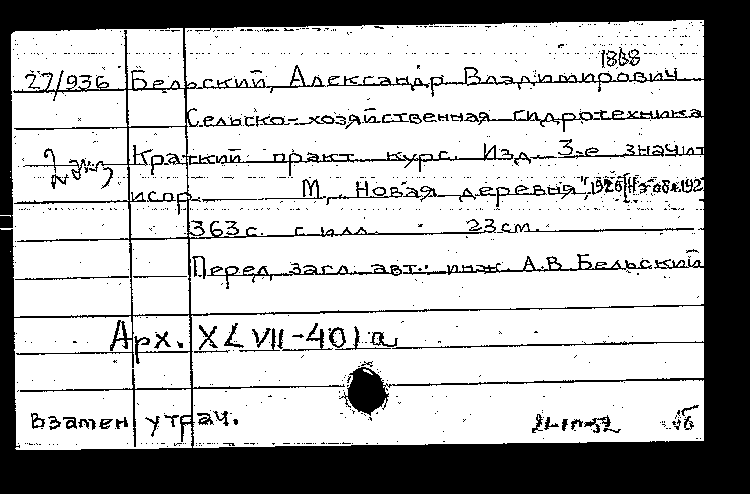 1868
27/936 Бельский, Александр Владимирович
Сельско-хозяйственная гидротехника
2 экз
Краткий практ. курс. Изд. 3-е значит
испр. М., "Новая деревня", 1926
363 с. с илл. 23 см.
Перед загл. авт.: инж. А.В. Бельский
Арх. XLVII-401а
Взамен утрач.